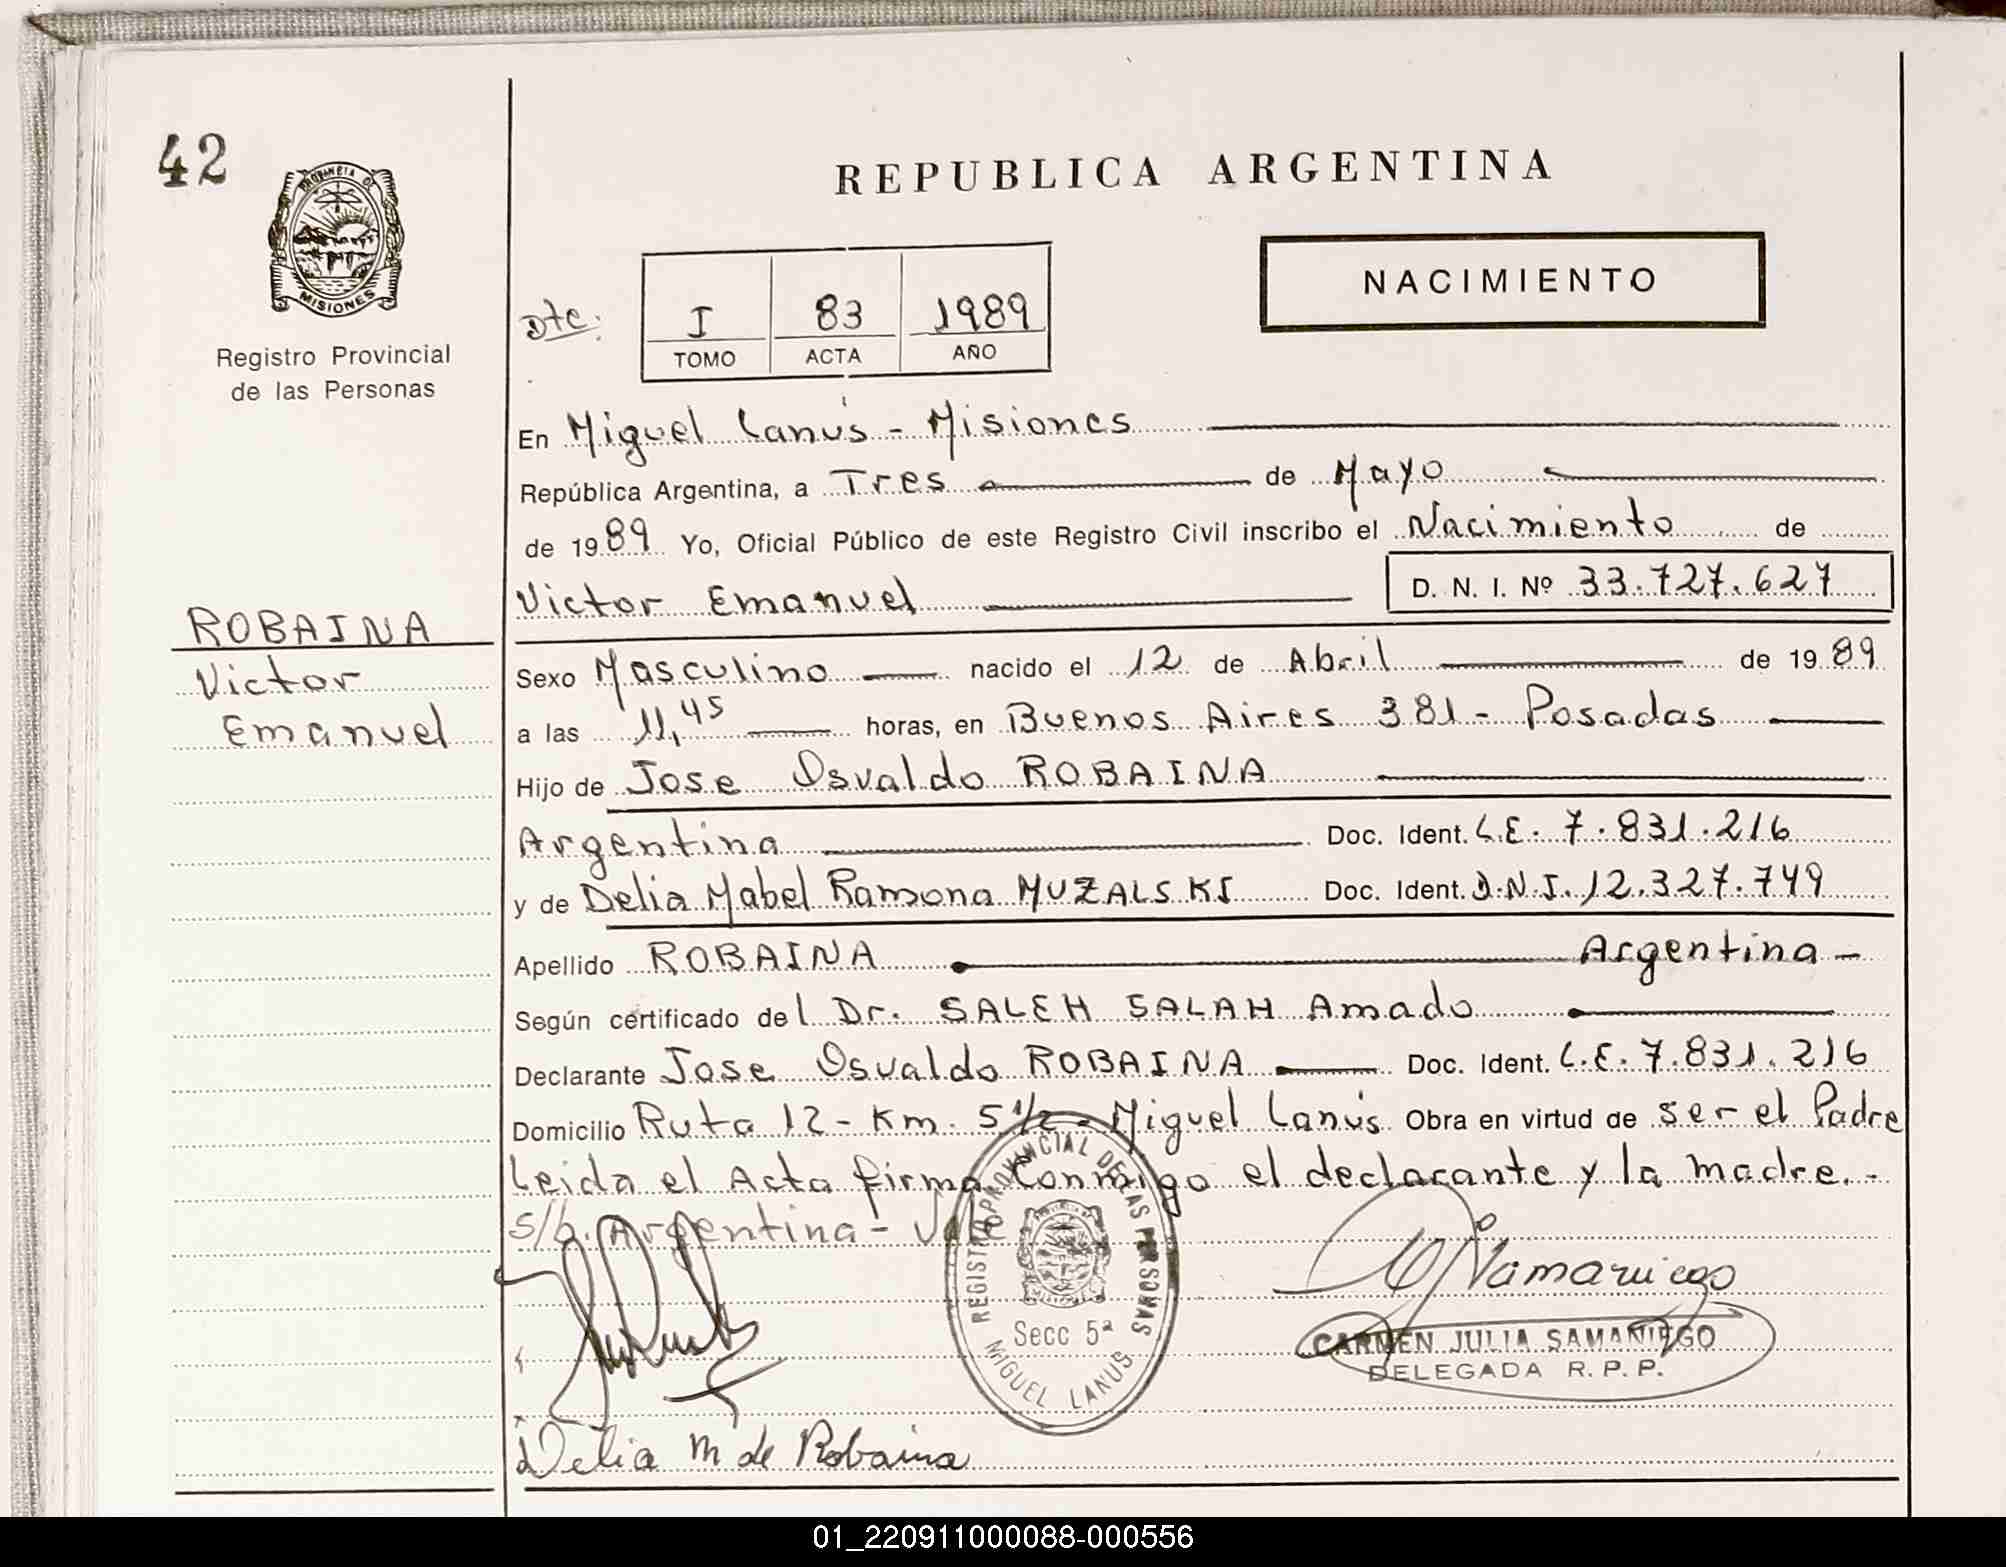 42
PROVINCIA DE
MISIONES
Registro Provincial
de las Personas
REPUBLICA ARGENTINA
NACIMIENTO
Dtc:
I 83 1989
TOMO ACTA AÑO
En Miguel Lanús - Misiones
República Argentina, a Tres de Mayo
de 1989 Yo, Oficial Público de este Registro Civil inscribo el Nacimiento de
Victor Emanuel D. N. I. Nº 33.727.627
ROBAINA
Victor
Emanuel
Sexo Masculino nacido el 12 de Abril de 1989
a las 11,45 horas, en Buenos Aires 381 - Posadas
Hijo de Jose Osvaldo ROBAINA
Argentina Doc. Ident. L.E. 7.831.216
y de Delia Mabel Ramona MUZALSKI Doc. Ident. D.N.I. 12.327.749
Apellido ROBAINA Argentina -
Según certificado del Dr. SALEH SALAH Amado
Declarante Jose Osvaldo ROBAINA Doc. Ident. L.E. 7.831.216
Domicilio Ruta 12 - Km. 5 1/2 - Miguel Lanús Obra en virtud de ser el Padre
Leida el Acta firma conmigo el declarante y la madre. -
S/b. Argentina - Vale
REGISTRO PROVINCIAL DE LAS PERSONAS
Secc 5ª
MIGUEL LANUS
CARMEN JULIA SAMANIEGO
DELEGADA R. P. P.
Delia M de Robaina
01_220911000088-000556